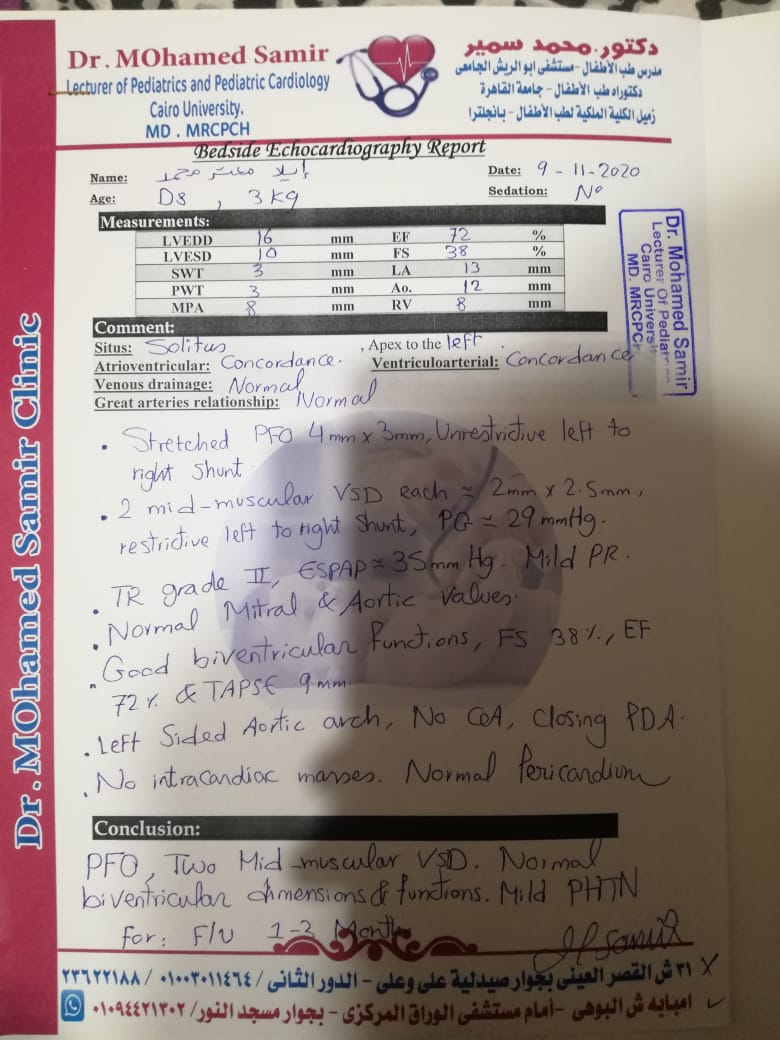 Dr. MOhamed Samir
Lecturer of Pediatrics and Pediatric Cardiology
Cairo University.
MD . MRCPCH
دكتور. محمد سمير
مدرس طب الأطفال - مستشفى ابو الريش الجامعى
دكتوراه طب الأطفال - جامعة القاهرة
زميل الكلية الملكية لطب الأطفال - بانجلترا
Bedside Echocardiography Report
Name: محمد
Date: 9 - 11 - 2020
Age: D8 , 3 Kg
Sedation: No
Measurements:
LVEDD 16 mm EF 72 %
LVESD 10 mm FS 38 %
SWT 3 mm LA 13 mm
PWT 3 mm Ao. 12 mm
MPA 8 mm RV 8 mm
Dr. Mohamed Samir
Lecturer Of
Cairo
MD. MRCPC
Comment:
Situs: Solitus , Apex to the left .
Atrioventricular: Concordance. Ventriculoarterial: Concordance
Venous drainage: Normal
Great arteries relationship: Normal
• Stretched PFO 4mm x 3mm, Unrestrictive left to
right shunt.
• 2 mid-muscular VSD each ≃ 2mm x 2.5mm,
restrictive left to right shunt, PG ≃ 29 mmHg.
• TR grade II, ESPAP ≃ 35 mmHg. Mild PR.
• Normal Mitral & Aortic Valves.
• Good biventricular functions, FS 38 %, EF
72 % & TAPSE 9 mm.
• Left Sided Aortic arch, No CoA, Closing PDA.
• No intracardiac masses. Normal Pericardium
Conclusion:
PFO, Two Mid-muscular VSD. Normal
biventricular dimensions & functions. Mild PHTN
For: F/U 1-3 Month
٣١ ش القصر العينى بجوار صيدلية على وعلى - الدور الثانى / ٠١٠٠٣٠١١٤٦٤ / ٢٣٦٢٢١٨٨
امبابه ش البوهى - أمام مستشفى الوراق المركزى - بجوار مسجد النور / ٠١٠٩٤٤٢١٣٠٢
Dr. MOhamed Samir Clinic